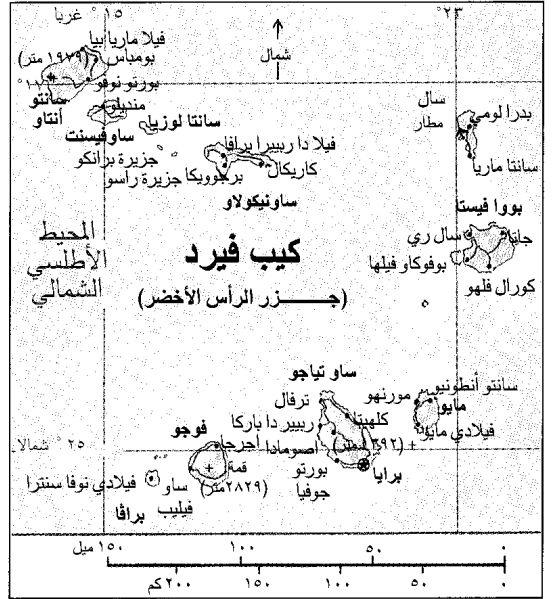 ١٥ ° غربا
٢٣ °
شمال
فيلا ماريا بيا
بومباس (١٩٧٩ متر)
بورتو نوفو
سانتو
أنتاو
منديلو
ساوفيسنت
سانتا لوزيا
جزيرة برانكو
جزيرة راسو
فيلا دا ريبيرا برافا
كاريكال
برجوويكا
ساونيكولاو
سال
مطار
بدرا لومي
سانتا ماريا
بووا فيستا
سال ري
جاتا
بوفوكاو فيلها
كورال فلهو
المحيط
الأطلسي
الشمالي
كيب فيرد
(جـــزر الرأس الأخضر)
ساو تياجو
ترفال
مورنهو
سانتو أنطونيو
مايو
فيلادي مايو
كلهيتا
ريبير دا باركا
اصومادا
بورتو
جوفيا
برايا
فوجو
قمة
(٢٨٢٩متر)
ساو
فيليب
فيلادي نوفا سنترا
براڤا
٢٥ ° شمالا
١٥٠ ميل
١٠٠
٥٠
٠
٢٠٠ كم
١٥٠
١٠٠
٥٠
٠